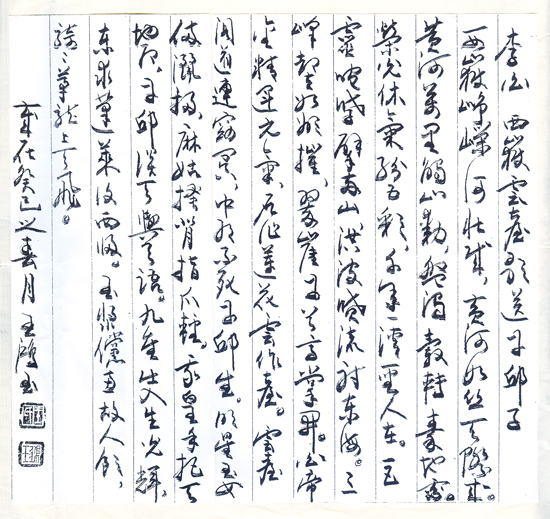 李白 西嶽雲臺歌送丹邱子
西嶽崢嶸何壯哉，黃河如丝天際來。
黃河萬里觸山動，盤渦轂轉秦地雷。
榮光休氣紛五彩，千年一清聖人在。巨
靈咆哮擘兩山，洪波噴流射东海。三
峰卻立如欲摧，翠崖丹谷高掌開。白帝
金精運元氣，石作蓮花雲作臺。雲臺
閣道連窈冥，中有不死丹邱生。明星玉女
備灑掃，麻姑搔背指爪輕。我皇手把天
地戶，丹邱談天與天語。九重出入生光輝，
东求蓬萊復西歸。玉漿儻惠故人飲，
騎二茅龍上天飛。
歲在癸巳之春月 王